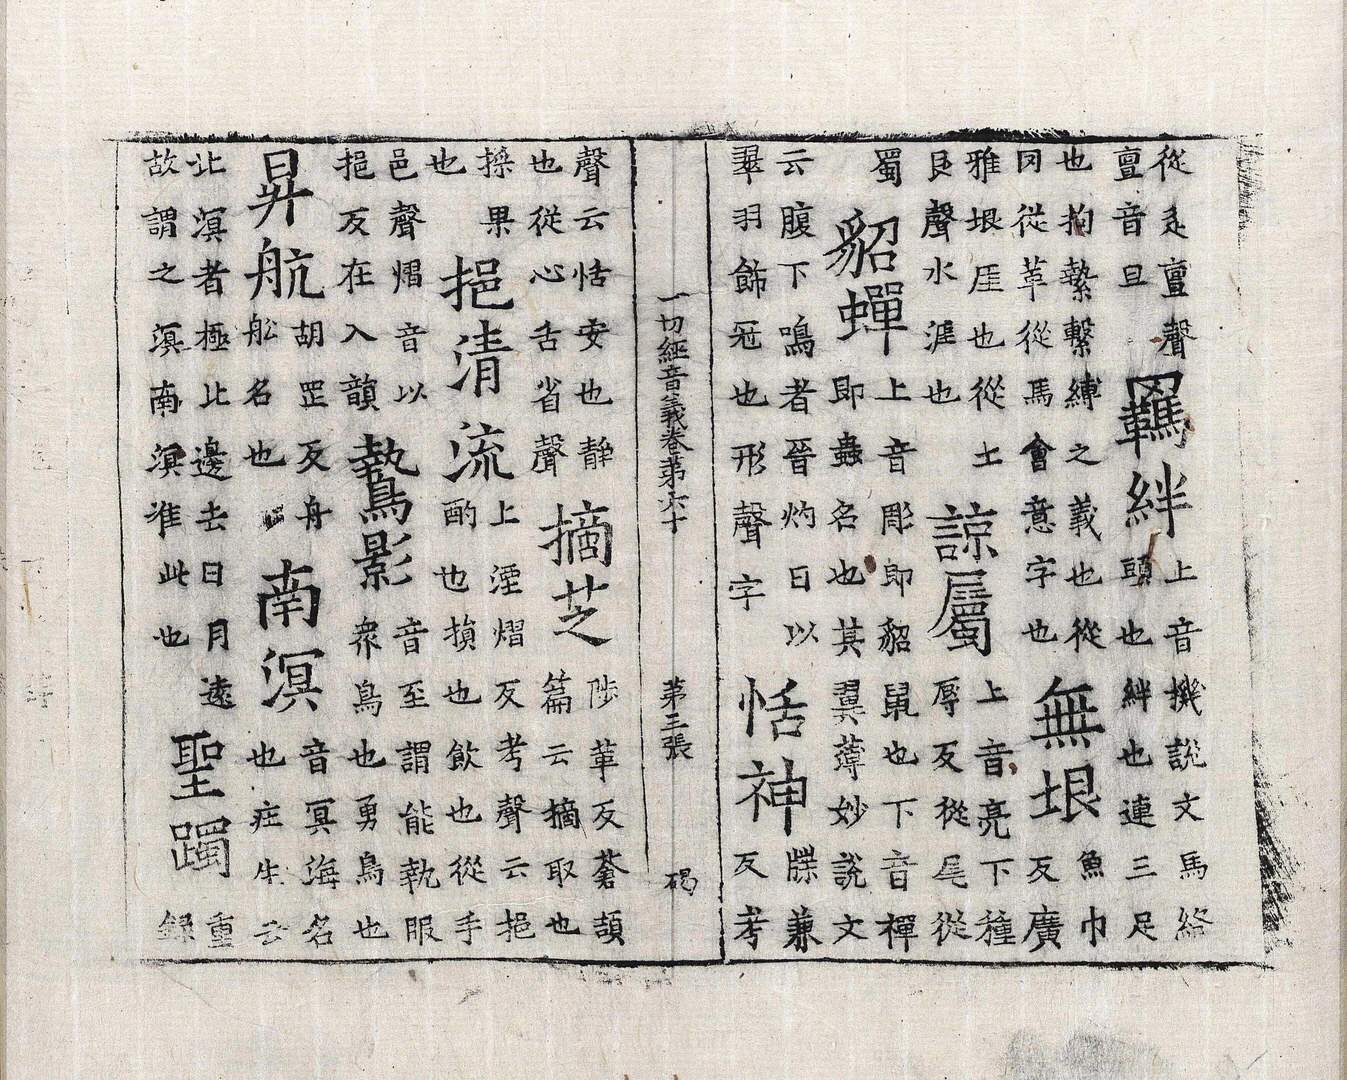 從辵亶聲
亶音旦
羈絆
上音機說文馬絡
頭也絆也連三足
也拘縶繫縛之義也從
罓從革從馬會意字也
無垠
魚巾
反廣
雅垠厓也從土
艮聲水涯也
諒屬
上音亮下種
辱反從尾從
蜀
貂蟬
上音彫即貂鼠也下音禪
即蟲名也其翼薄妙說文
云腹下鳴者晉灼曰以
翠羽飾冠也形聲字
恬神
牒兼
反考
一切經音義卷第六十 第三張 碣
聲云恬安也靜
也從心舌省聲
摘芝
陟革反蒼頡
篇云摘取也
採果
也
挹清流
上湮熠反考聲云挹
酌也損也飲也從手
邑聲熠音以
挹反在入韻
鷙影
音至謂能執服
衆鳥也勇鳥也
昇航
胡罡反舟
舩名也
南溟
音冥海名
也庄生云
北溟者極北邊去日月遠
故謂之溟南溟准此也
聖躅
重
録